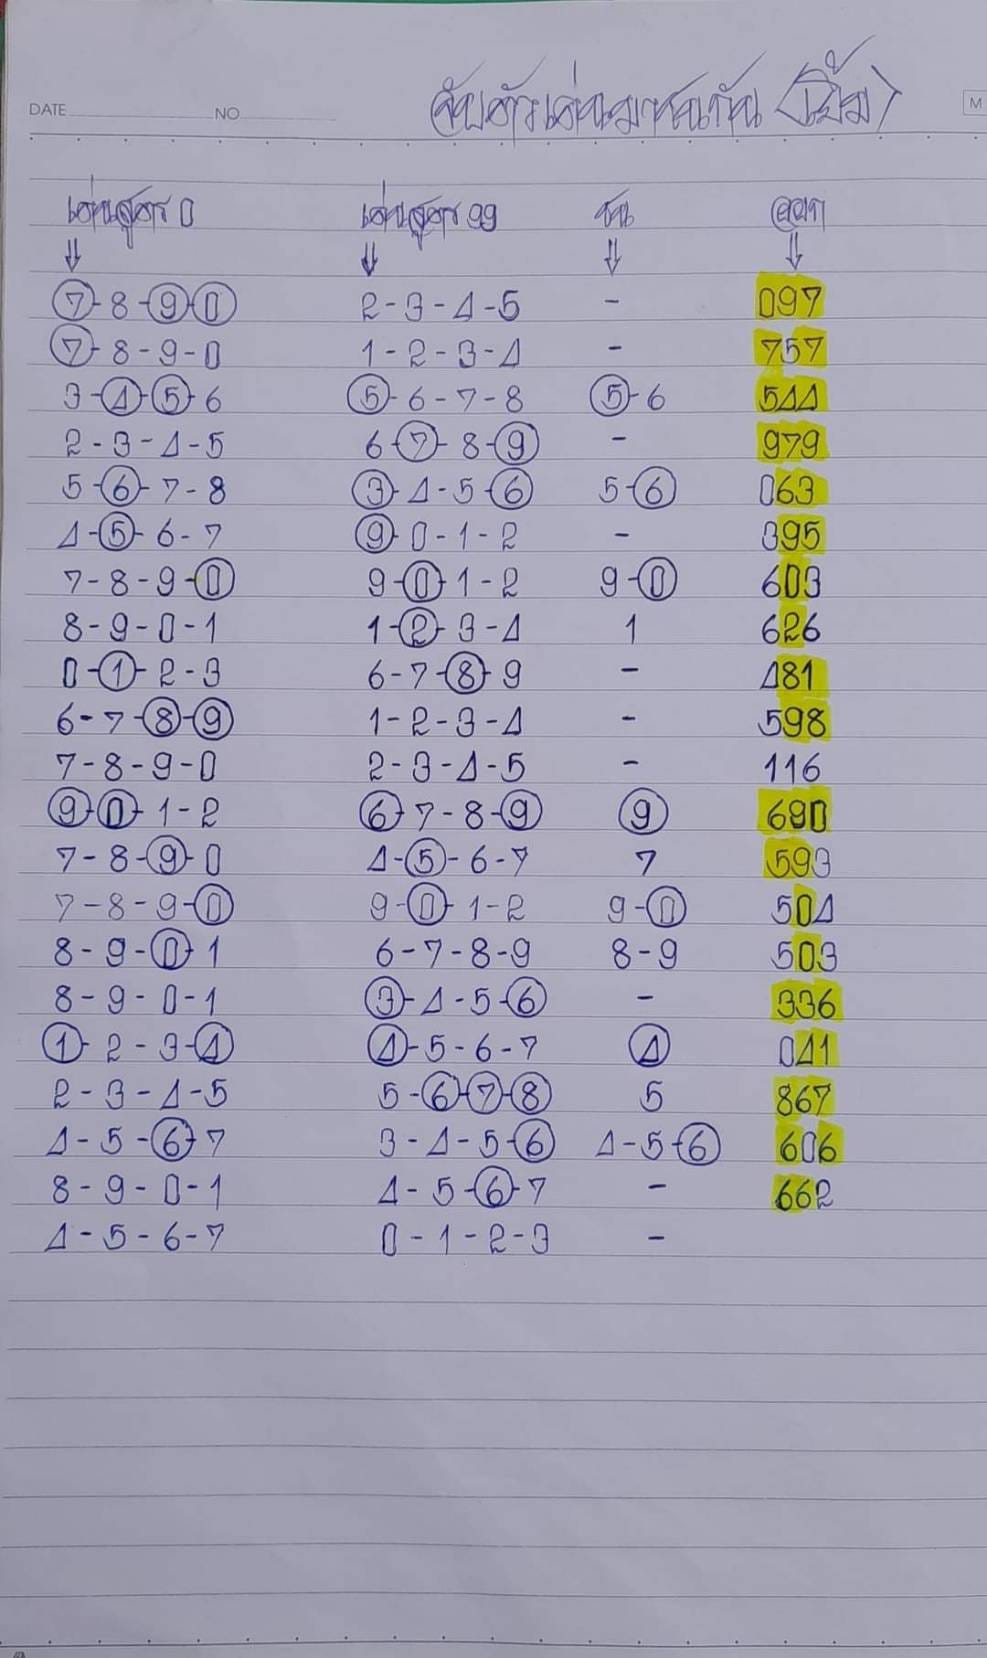 DATE NO M
จับตัวเด่นมาชนกัน (เน้น)
เด่นสูตร 0 เด่นสูตร 99 ชน ออก
7-8-9-0 2-3-4-5 - 097
7-8-9-0 1-2-3-4 - 757
3-4-5-6 5-6-7-8 5-6 544
2-3-4-5 6-7-8-9 - 979
5-6-7-8 3-4-5-6 5-6 063
4-5-6-7 9-0-1-2 - 395
7-8-9-0 9-0-1-2 9-0 603
8-9-0-1 1-2-3-4 1 626
0-1-2-3 6-7-8-9 - 481
6-7-8-9 1-2-3-4 - 598
7-8-9-0 2-3-4-5 - 116
9-0-1-2 6-7-8-9 9 690
7-8-9-0 4-5-6-7 7 593
7-8-9-0 9-0-1-2 9-0 504
8-9-0-1 6-7-8-9 8-9 503
8-9-0-1 3-4-5-6 - 336
1-2-3-4 4-5-6-7 4 041
2-3-4-5 5-6-7-8 5 867
4-5-6-7 3-4-5-6 4-5-6 606
8-9-0-1 4-5-6-7 - 662
4-5-6-7 0-1-2-3 -